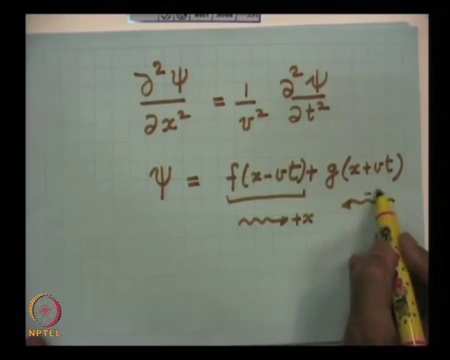 ∂²Ψ/∂x² = 1/v² ∂²Ψ/∂t²
Ψ = f(x-vt) + g(x+vt)
+x
NPTEL